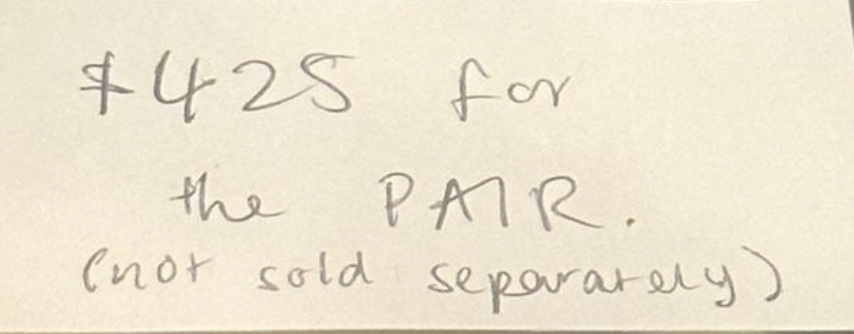 $425 for
the PAIR.
(not sold separately)